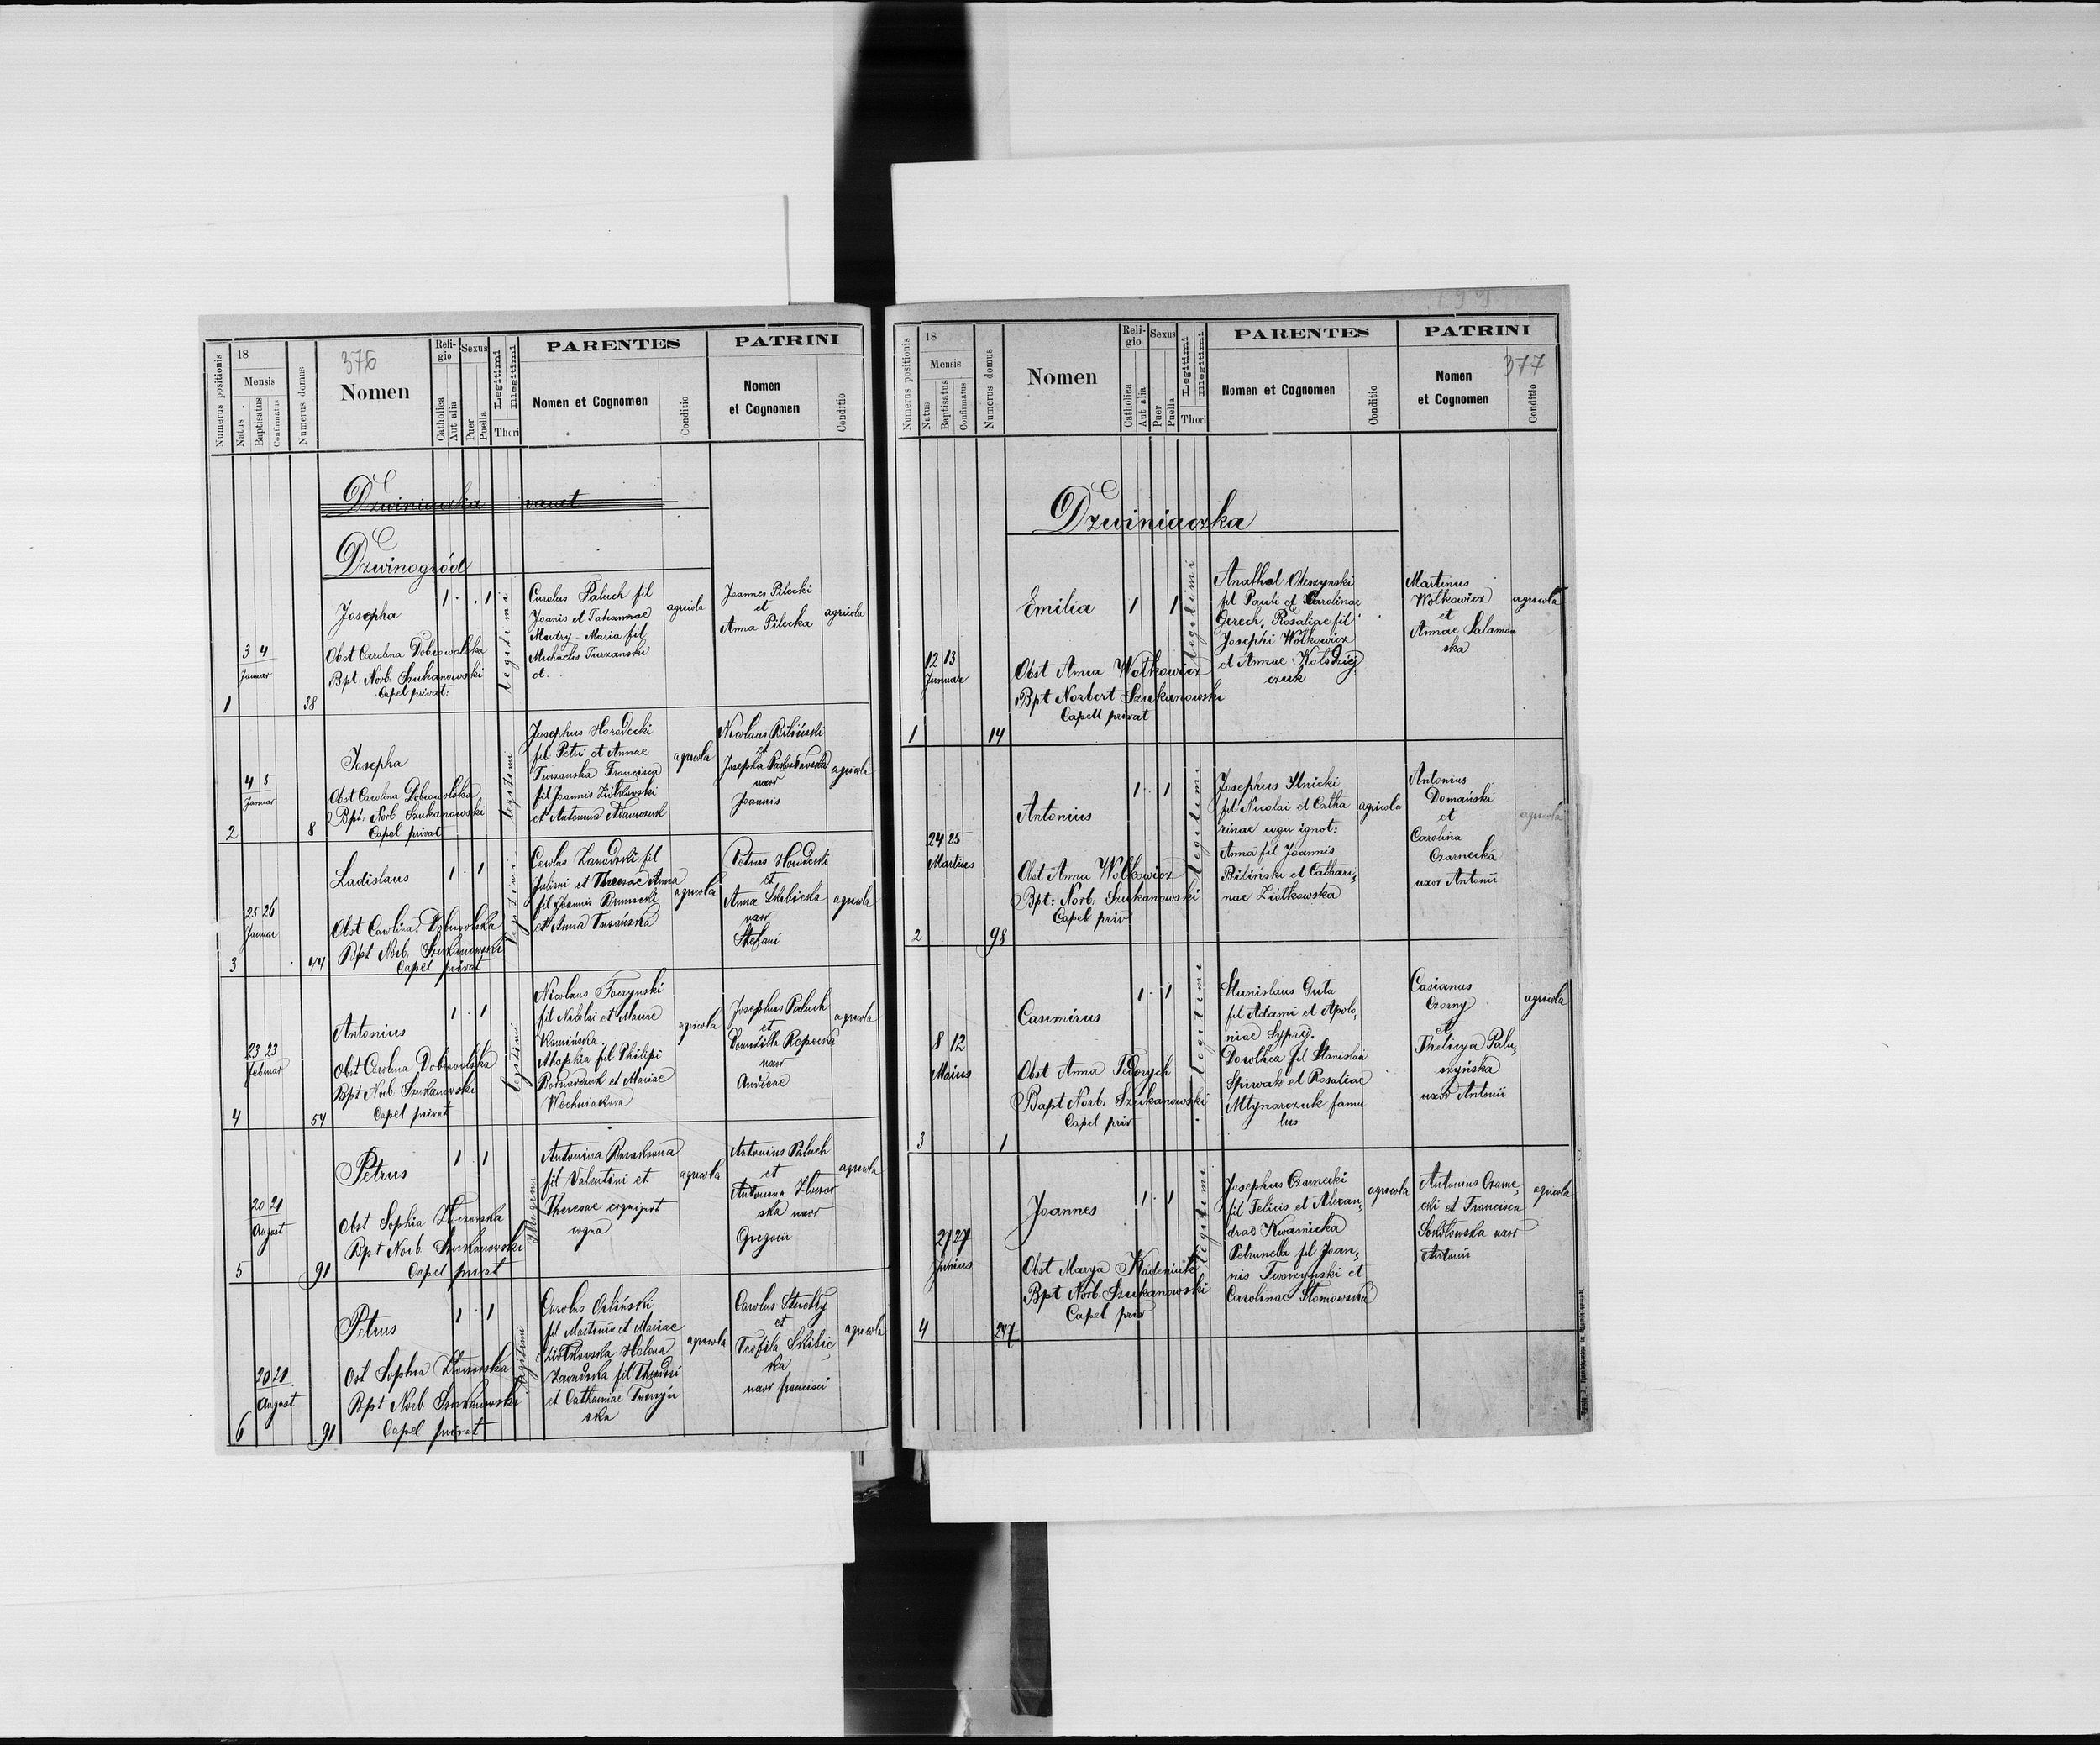 376
Numerus positionis
18
Mensis
Natus
Baptisatus
Confirmatus
Numerus domus
Nomen
Religio
Catholica
Aut alia
Sexus
Puer
Puella
Legitimi
Illegitimi
Thori
PARENTES
Nomen et Cognomen
Conditio
PATRINI
Nomen
et Cognomen
Conditio
Dzwiniaczka vacat
Dzwinogród
1
3 4
Januar
38
Josepha
Obst Carolina Dobrowolska
Bpt: Norb. Szukanowski
Capel privat:
1 1
legitimi
Carolus Paluch fil
Joanis et Tatiannae
Mudry - Maria fil
Michaelis Turzanski
et.
agricola
Joannes Pilecki
et
Anna Pilecka
agricola
2
4 5
Januar
8
Josepha
Obst Carolina Dobrowolska
Bpt: Norb Szukanowski
Capel privat
legitimi
Josephus Horodecki
fil. Petri et Annae
Turzanska Francisca
fil Joannis Ziółkowski
et Antonina Adamczuk
agricola
Nicolaus Biliński
et
Josepha
uxor
Joannis
agricola
3
25 26
Januar
44
Ladislaus
Obst Carolina Dobrowolska
Bpt Norb. Szukanowski
Capel privat
1 1
legitimi
Carolus Zawadzki fil
Juliani et Theresae Anna
fil Joannis
et Anna
agricola
Petrus Horodecki
et
Anna Skibicka
uxor
Stefani
agricola
4
23 23
Februar
54
Antonius
Obst Carolina Dobrowolska
Bpt Norb Szukanowski
Capel privat
1 1
legitimi
Nicolaus Toczynski
fil Nicolai et Mariae
Kamińska
fil Philipi
Bednarczuk et Mariae
agricola
Josephus Paluch
et
Domitilla Repecka
uxor
Andreae
agricola
5
20 21
August
91
Petrus
Obst Sophia
Bpt Norb Szukanowski
Capel privat
1 1
Illegitimi
Antonina
fil Valentini et
Theresae
agricola
Antonius Paluch
et
Antonina
ska uxor
Gregorii
agricola
6
20 21
August
91
Petrus
Ost Sophia
Bpt Norb. Szukanowski
Capel privat
1 1
legitimi
Carolus Orliński
fil Martini et Mariae
Ziółkowska Helena
Zawadzka fil
et Catharinae Tworzyń
ska
agricola
Carolus
et
Teofila Skibic
ka
uxor francisci
agricola
377
Numerus positionis
18
Mensis
Natus
Baptisatus
Confirmatus
Numerus domus
Nomen
Religio
Catholica
Aut alia
Sexus
Puer
Puella
Legitimi
Illegitimi
Thori
PARENTES
Nomen et Cognomen
Conditio
PATRINI
Nomen
et Cognomen
Conditio
Dzwiniaczka
1
12 13
Januar
14
Emilia
Obst Anna Wołkowicz
Bpt Norbert Szukanowski
Capell privat
1 1
legitimi
Anathol Oleszynski
fil Pauli et Carolinae
Gerech, Rosaliae fil
Josephi Wołkowicz
et Annae Kołodziej
czuk
Martinus
Wołkowicz
et
Annae Salamon
ska
agricola
2
24 25
Martius
98
Antonius
Obst Anna Wołkowicz
Bpt: Norb. Szukanowski
Capel priv
1 1
legitimi
Josephus Ilnicki
fil Nicolai et Catha
rinae cogn ignot:
Anna fil Joannis
Biliński et Cathari,
nae Ziółkowska
agricola
Antonius
Domański
et
Carolina
Czarnecka
uxor Antonii
agricola
3
8 12
Maius
1
Casimirus
Obst Anna Fedorych
Bapt Norb. Szukanowski
Capel priv
1 1
legitimi
Stanislaus Guta
fil Adami et Apolo,
niae
Dorothea fil Stanislai
Spiwak et Rosaliae
Młynarczuk famu
lus
Casianus
Czarny
et
Palu,
szyńska
uxor Antonii
agricola
4
27 27
Junius
247
Joannes
Obst Marya Kadeniuk
Bpt Norb. Szukanowski
Capel priv
1 1
legitimi
Josephus Czarnecki
fil Felicis et Alexan,
drae Kwasnicka
Petrunella fil Joan,
nis Tworzynski et
Carolinae Słomowska
agricola
Antonius Czarne,
cki et Francisca
Sokołowska uxor
Antonii
agricola